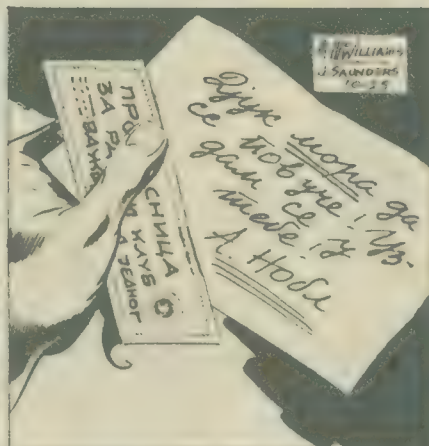 WILLIAMS
SAUNDERS
10-25
Дјук мора да
се повуче! Уз-
дам се у
тебе!
А. Нобл
ПРО СНИЦА
ЗА КЛУБ
ЈЕДНОГ